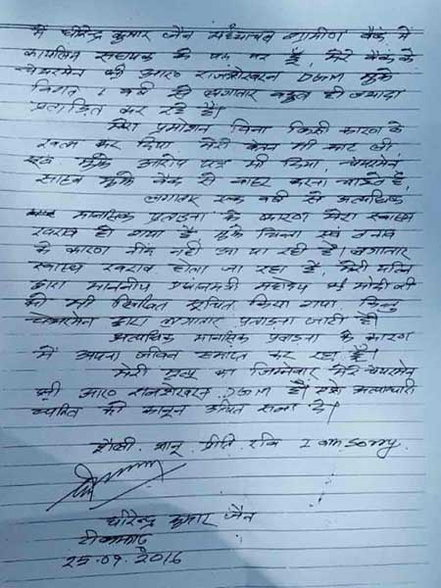 मैं धीरेन्द्र कुमार जैन मध्यांचल ग्रामीण बैंक में
कार्यालय सहायक के पद पर हूँ, मेरे बैंक के
चेयरमेन श्री आर० राजशेखरन DGM मुझे
विगत 1 वर्ष से लगातार बहुत ही ज्यादा
प्रताड़ित कर रहे हैं।
मेरा प्रमोशन बिना किसी कारण के
खत्म कर दिया मेरी वेतन भी काट ली
एवं मुझे आरोप पत्र भी दिया, चेयरमेन
साहब मुझे बैंक से बाहर करना चाहते हैं,
लगातार एक वर्ष से अत्यधिक
मानसिक प्रताड़ना के कारण मेरा स्वास्थ्य
खराब हो गया है मुझे चिन्ता एवं तनाव
के कारण नींद नहीं आ पा रही है। लगातार
स्वास्थ्य खराब होता जा रहा है, मेरी पत्नि
द्वारा माननीय प्रधानमंत्री महोदय श्री मोदी जी
को भी लिखित सूचित किया गया, किन्तु
चेयरमेन द्वारा लगातार प्रताड़ना जारी है।
अत्यधिक मानसिक प्रताड़ना के कारण
मैं अपना जीवन समाप्त कर रहा हूँ।
मेरी मृत्यु का जिम्मेवार मेरे चेयरमेन
श्री आर० राजशेखरन DGM हैं। ऐसे अत्याचारी
व्यक्ति को कानून उचित सजा दे।
प्रीति रवि I am sorry.
धीरेन्द्र कुमार जैन
टीकमगढ़
25.09.2016